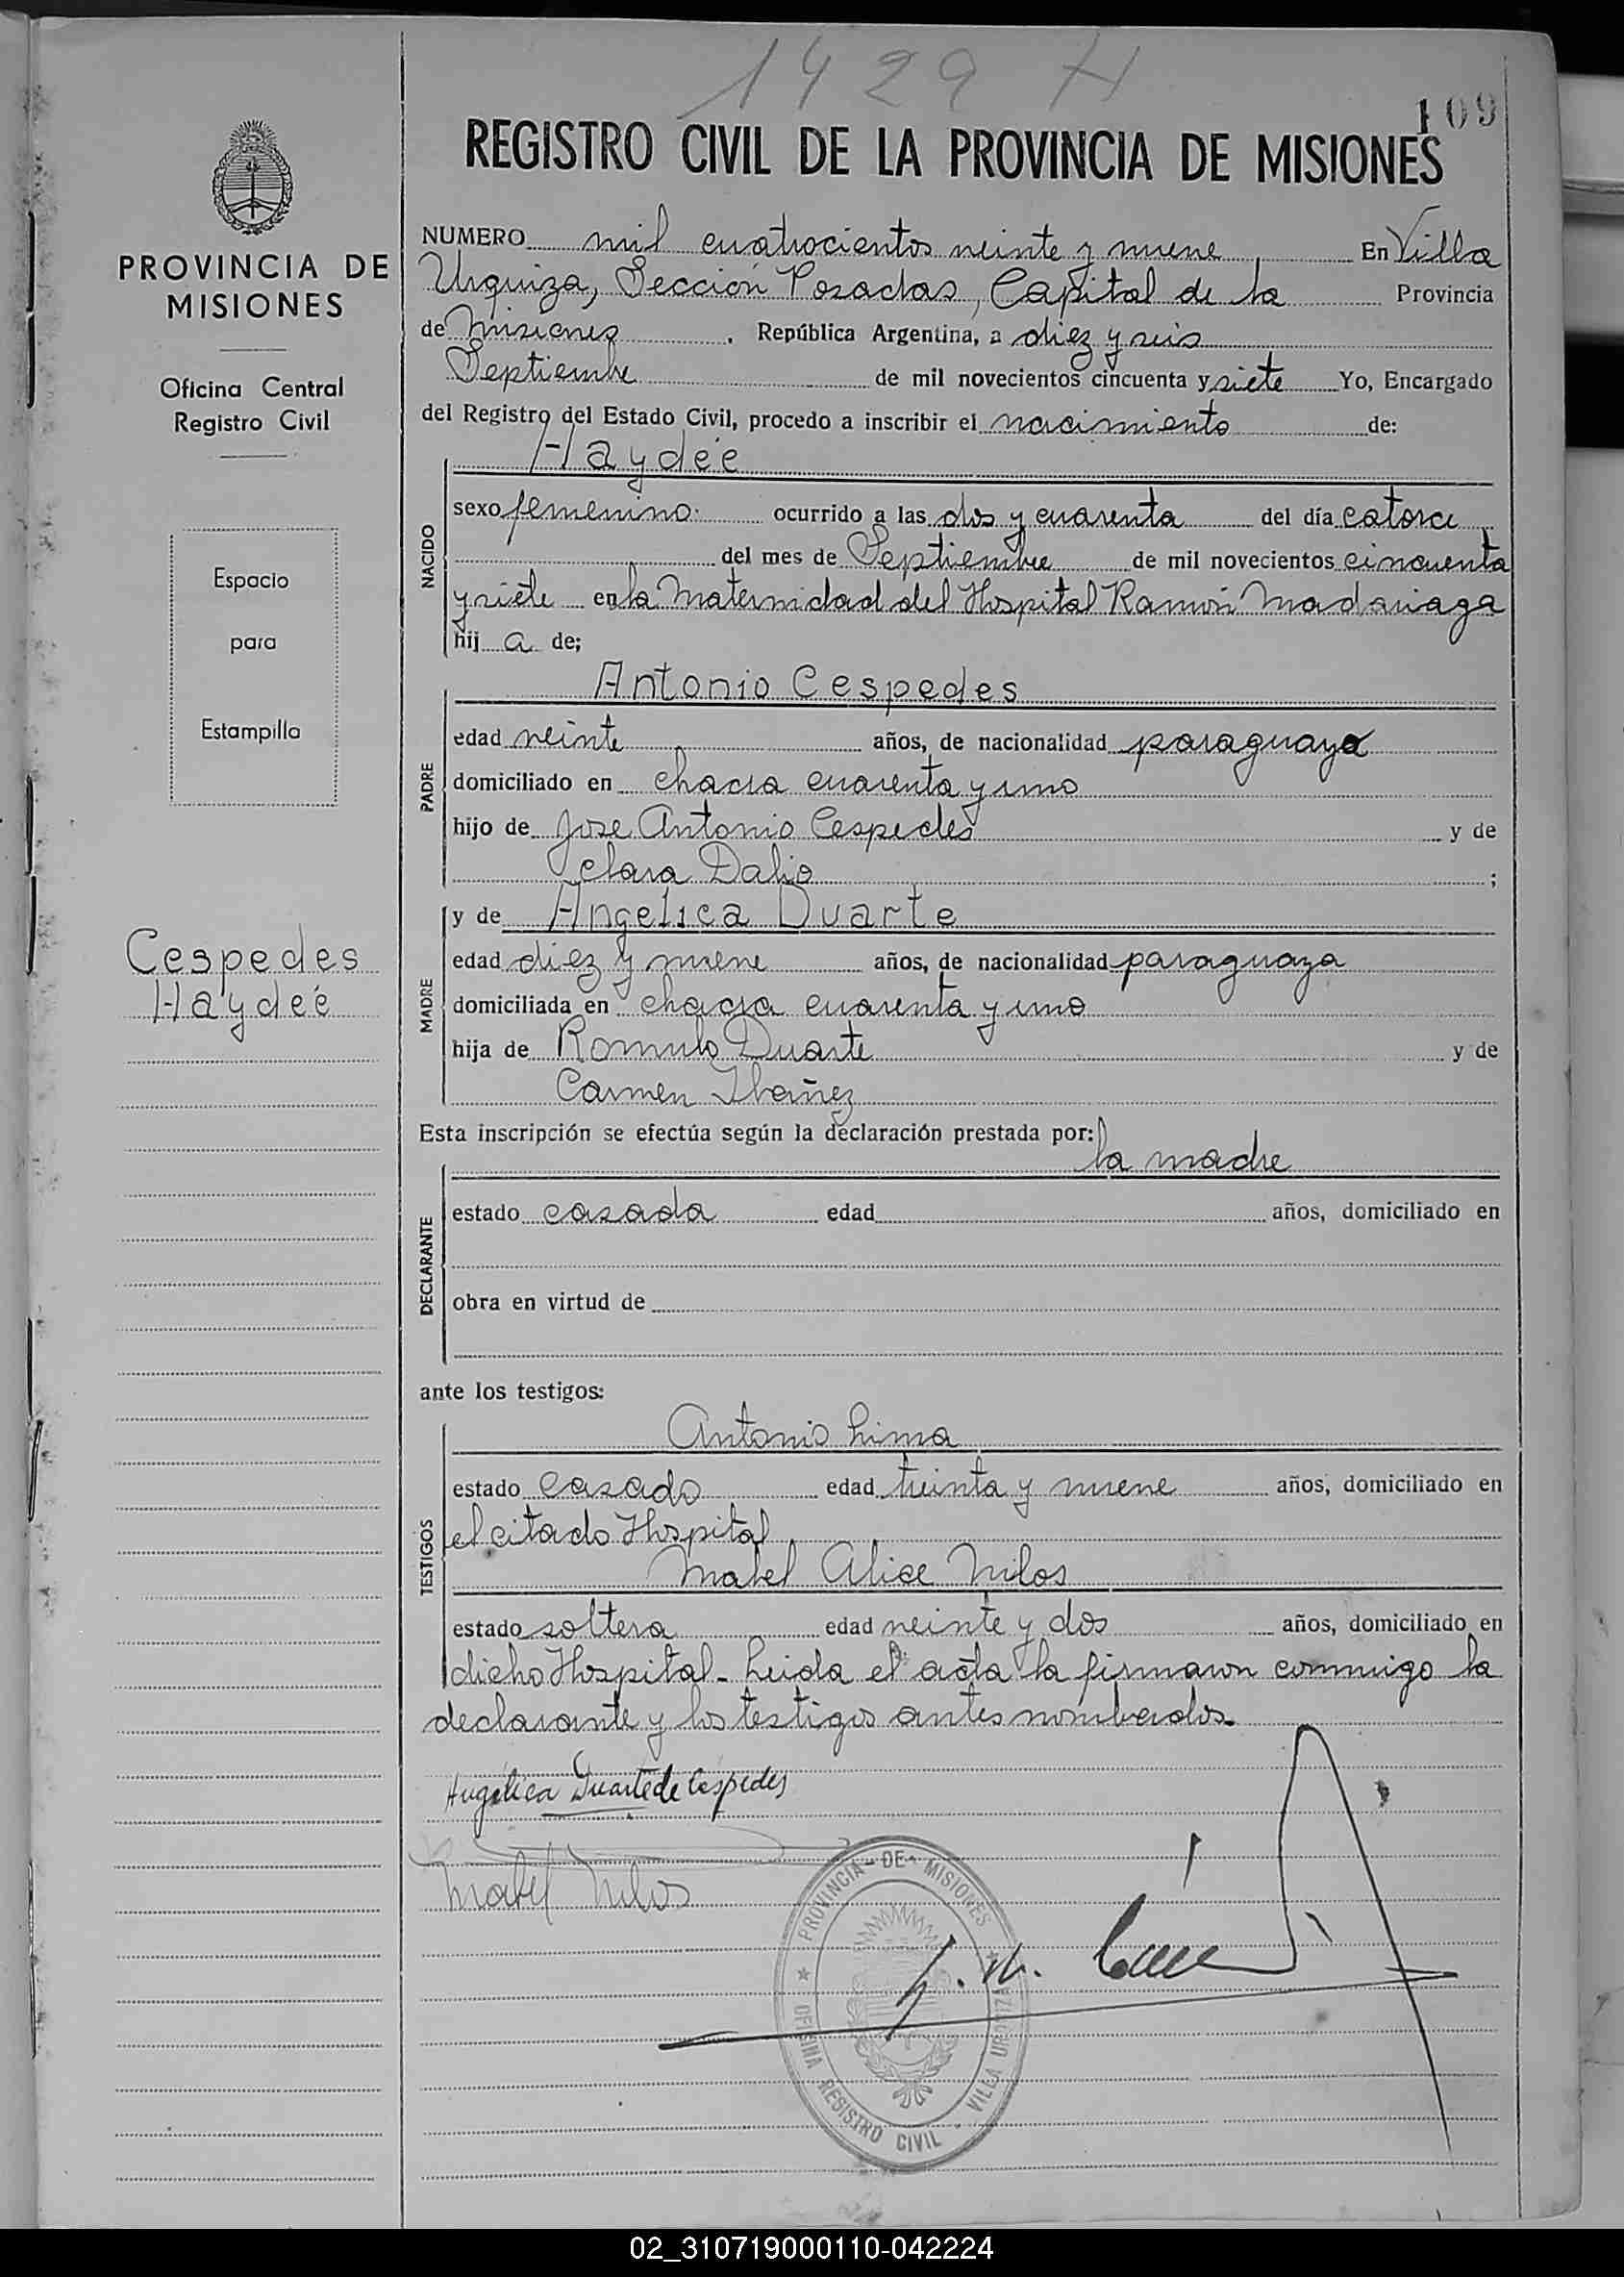 1429 H
109
REGISTRO CIVIL DE LA PROVINCIA DE MISIONES
PROVINCIA DE
MISIONES
Oficina Central
Registro Civil
Espacio
para
Estampilla
Cespedes
Haydée
NUMERO mil cuatrocientos veinte y nueve En Villa
Urquiza, Sección Posadas, Capital de la Provincia
de Misiones. República Argentina, a diez y seis
Septiembre de mil novecientos cincuenta y siete Yo, Encargado
del Registro del Estado Civil, procedo a inscribir el nacimiento de:
Haydée
NACIDO
sexo femenino ocurrido a las dos y cuarenta del día catorce
del mes de Septiembre de mil novecientos cincuenta
y siete en la Maternidad del Hospital Ramón Madariaga
hij a de;
Antonio Cespedes
PADRE
edad veinte años, de nacionalidad paraguaya
domiciliado en chacra cuarenta y uno
hijo de Jose Antonio Cespedes y de
Clara Dalio ;
y de Angelica Duarte
MADRE
edad diez y nueve años, de nacionalidad paraguaya
domiciliada en chacra cuarenta y uno
hija de Romulo Duarte y de
Carmen Ibañez
Esta inscripción se efectúa según la declaración prestada por:
la madre
DECLARANTE
estado casada edad años, domiciliado en
obra en virtud de
ante los testigos:
Antonio Lima
TESTIGOS
estado casado edad treinta y nueve años, domiciliado en
el citado Hospital
Mabel Alice Milos
estado soltera edad veinte y dos años, domiciliado en
dicho Hospital - Leida el acta la firmaron conmigo la
declarante y los testigos antes nombrados.
Angélica Duarte de Cespedes
Mabel Milos
PROVINCIA DE MISIONES
OFICINA REGISTRO CIVIL - VILLA URQUIZA
02_310719000110-042224